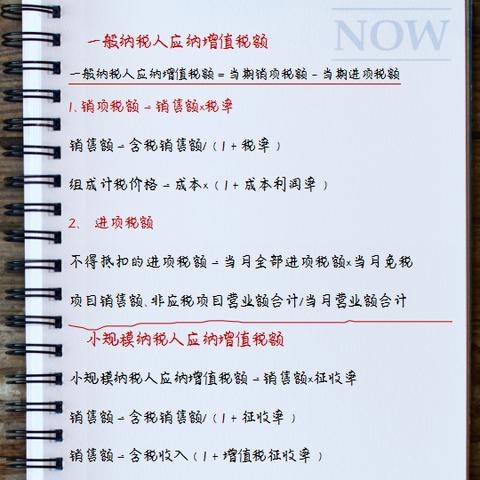 NOW
一般纳税人应纳增值税额
一般纳税人应纳增值税额=当期销项税额-当期进项税额
1.销项税额=销售额×税率
销售额=含税销售额/(1+税率)
组成计税价格=成本×(1+成本利润率)
2、 进项税额
不得抵扣的进项税额=当月全部进项税额×当月免税
项目销售额、非应税项目营业额合计/当月营业额合计
小规模纳税人应纳增值税额
小规模纳税人应纳增值税额=销售额×征收率
销售额=含税销售额/(1+征收率)
销售额=含税收入(1+增值税征收率)